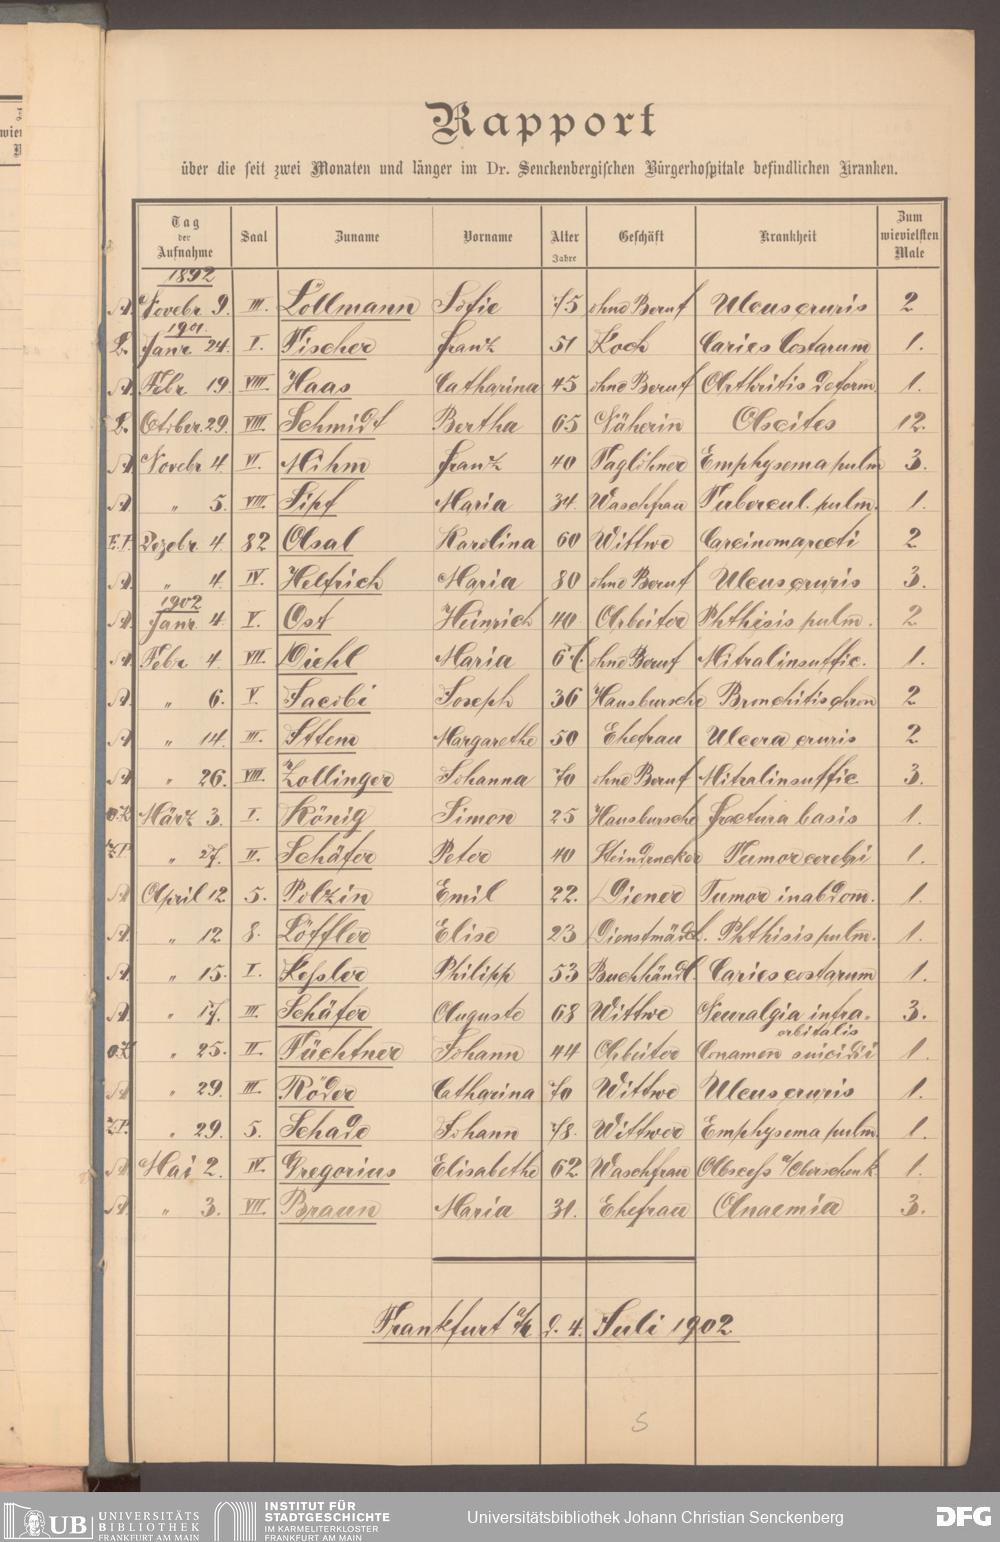 Rapport
über die seit zwei Monaten und länger im Dr. Senckenbergischen Bürgerhospitale befindlichen Kranken.
Tag der Aufnahme Saal Zuname Vorname Alter Jahre Geschäft Krankheit Zum wievielsten Male
1892
A. Novebr 9. III. Löllmann Sofie 75 ohne Beruf Ulcus cruris 2
1901.
L. Janr. 24. I. Fischer Franz 51 Koch Caries Costarum 1.
A. Febr. 19. VIII. Haas Catharina 45 ohne Beruf Arthritis deform. 1.
L. Octber. 29. VIII. Schmidt Bertha 65 Näherin Ascites 12.
A. Novebr 4. VI. Mihm Franz 40 Taglöhner Emphysema pulm 3.
A. " 5. VIII. Sipf Maria 34. Waschfrau Tubercul. pulm. 1.
E.P. Dezebr. 4. 82 Olsal Karolina 60 Wittwe Carcinoma recti 2
A. " 4. IV. Helfrich Maria 80 ohne Beruf Ulcus cruris 3.
1902
A. Janr. 4. V. Ost Heinrich 40 Arbeiter Phthisis pulm. 2
A. Febr 4. VII. Diehl Maria ohne Beruf Mitralinsuffic. 1.
A. " 6. V. Jacobi Joseph 36 Hausbursche Bronchitis chron 2
A " 14. III. Ittem Margarethe 50 Ehefrau Ulcera cruris 2
A " 26. VIII. Zollinger Johanna 70 ohne Beruf Mitralinsuffic 3.
O.K. März 3. I. König Simon 25 Hausbursche Fractura basis 1.
Z.P. " 27. II. Schäfer Peter 40 Steindrucker Tumor cerebri 1.
A April 12. 5. Polzin Emil 22. Diener Tumor in abdom. 1.
A. " 12. 8. Löffler Elise 23 Dienstmädch. Phthisis pulm. 1.
A. " 15. I. Kessler Philipp 53 Buchhändl. Caries costarum 1.
A. " 17. III. Schäfer Auguste 68 Wittwe Neuralgia infra- 3.
orbitalis
O.K. " 25. II. Füchtner Johann 44 Arbeiter Conamen suicidii 1.
A " 29. III. Röder Catharina 70 Wittwe Ulcus cruris 1.
Z.P. " 29. 5. Schade Johann 78. Wittwer Emphysema pulm. 1.
A Mai 2. IV. Gregorius Elisabethe 62 Waschfrau Abscess a/Oberschenk. 1.
A. " 3. VII. Braun Maria 31. Ehefrau Anaemia 3.
Frankfurt a/M d. 4. Juli 1902
5
UB UNIVERSITÄTS
BIBLIOTHEK
FRANKFURT AM MAIN
INSTITUT FÜR
STADTGESCHICHTE
IM KARMELITERKLOSTER
FRANKFURT AM MAIN
Universitätsbibliothek Johann Christian Senckenberg
DFG